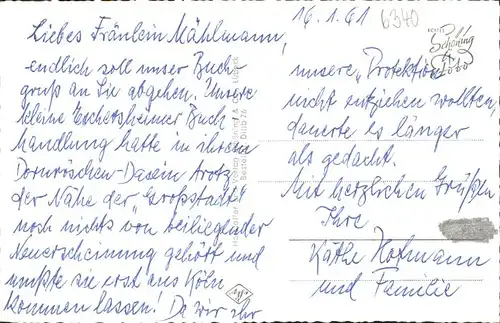 16.1.61
6340
Liebes Fräulein Mählmann,
endlich soll unser Buch-
gruß an Sie abgehen. Unsere
kleine Eschersheimer Buch-
handlung hatte in ihrem
Dornröschen-Dasein trotz
der Nähe der "Großstadt"
noch nichts von beiliegender
Neuerscheinung gehört und
mußte sie erst aus Köln
kommen lassen! Da wir ihr
unsere "Protektion"
nicht entziehen wollten,
dauerte es länger
als gedacht.
Mit herzlichen Grüßen
Ihre
Käthe Hofmann
und Familie
Schöning